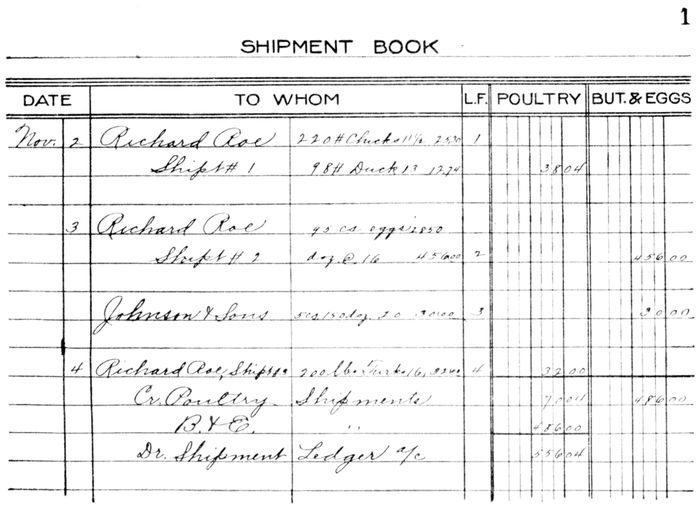 1
SHIPMENT BOOK
DATE TO WHOM L.F. POULTRY BUT. & EGGS
Nov. 2 Richard Roe 220# Chicks 11½ 2530 1
Shipt # 1 98# Duck 13 1274 3804
3 Richard Roe 95 cs eggs 2850
Shipt # 2 doz @ 16 45600 2 45600
Johnson & Sons 5cs 150 doz 20 3000 3 3000
4 Richard Roe, Shipt 200 lbs Turks 16, 3200 4 3200
Cr. Poultry Shipments 7004 48600
B. & E. " 48600
Dr. Shipment Ledger a/c 55604